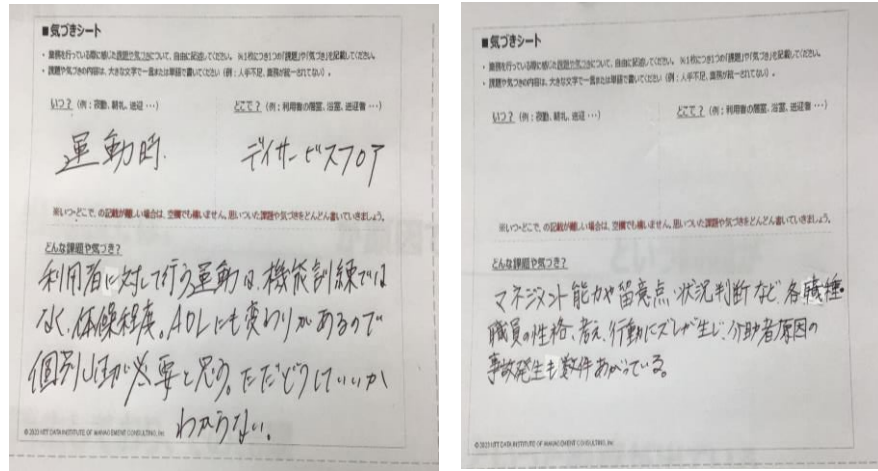 ■気づきシート
・ 業務を行っている際に感じた課題や気づきについて、自由に記述してください。 ※1枚につき1つの「課題」や「気づき」を記載してください。
・ 課題や気づきの内容は、大きな文字で一言または単語で書いてください（例：人手不足、業務が統一されてない）。
いつ？（例：夜勤、朝礼、送迎…）
どこで？（例：利用者の居室、浴室、送迎車…）
運動時.
デイサービスフロア
※いつ・どこで、の記載が難しい場合は、空欄でも構いません。思いついた課題や気づきをどんどん書いていきましょう。
どんな課題や気づき？
利用者に対して行う運動は、機能訓練では
なく、体操程度。ADLにも変わりがあるので
個別が必要と思う。ただどうしていいか
わからない。
©2023 NTT DATA INSTITUTE OF MANAGEMENT CONSULTING, Inc
■気づきシート
・ 業務を行っている際に感じた課題や気づきについて、自由に記述してください。 ※1枚につき1つの「課題」や「気づき」を記載してください。
・ 課題や気づきの内容は、大きな文字で一言または単語で書いてください（例：人手不足、業務が統一されてない）。
いつ？（例：夜勤、朝礼、送迎…）
どこで？（例：利用者の居室、浴室、送迎車…）
※いつ・どこで、の記載が難しい場合は、空欄でも構いません。思いついた課題や気づきをどんどん書いていきましょう。
どんな課題や気づき？
マネジメント能力や留意点・状況判断など、各職種・
職員の性格、考え、行動にズレが生じ、介助者原因の
事故発生も数件あがっている。
©2023 NTT DATA INSTITUTE OF MANAGEMENT CONSULTING, Inc